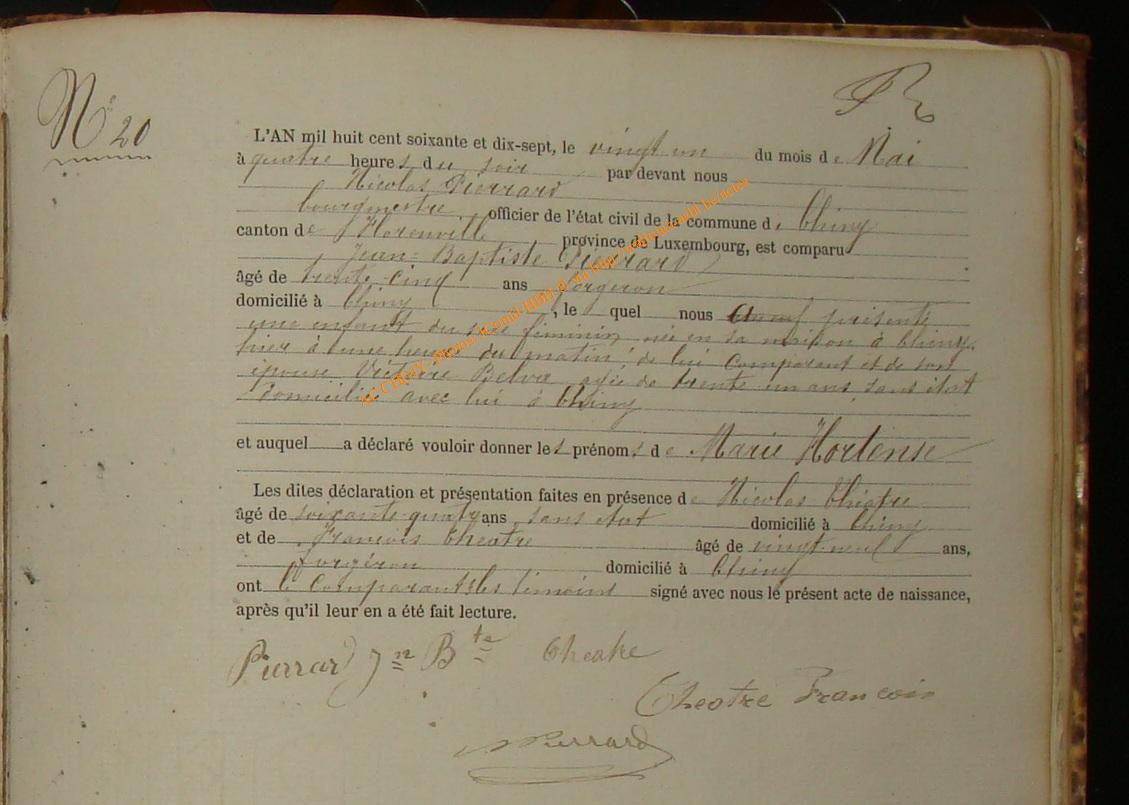 N° 20
L'AN mil huit cent soixante et dix-sept, le vingt un du mois de Mai
à quatre heures du soir par devant nous
Nicolas Pierrard
bourgmestre officier de l'état civil de la commune de Chiny
canton de Florenville province de Luxembourg, est comparu
Jean-Baptiste Pierrard
âgé de trente cinq ans forgeron
domicilié à Chiny, le quel nous présenté
une enfant du sexe féminin née en sa maison à Chiny
hier à une heure du matin, de lui comparant et de son
épouse Victoire Belva agée de trente un ans, sans état
domiciliée avec lui à Chiny
et auquel a déclaré vouloir donner les prénoms de Marie Hortense
Les dites déclaration et présentation faites en présence de Nicolas Théatre
âgé de soixante-quatre ans sans état domicilié à Chiny
et de François Théatre âgé de vingt-neuf ans,
forgeron domicilié à Chiny
ont le comparant & les témoins signé avec nous le présent acte de naissance,
après qu'il leur en a été fait lecture.
Pierrard Jn Bte Theatre
Theatre François
Pierrard